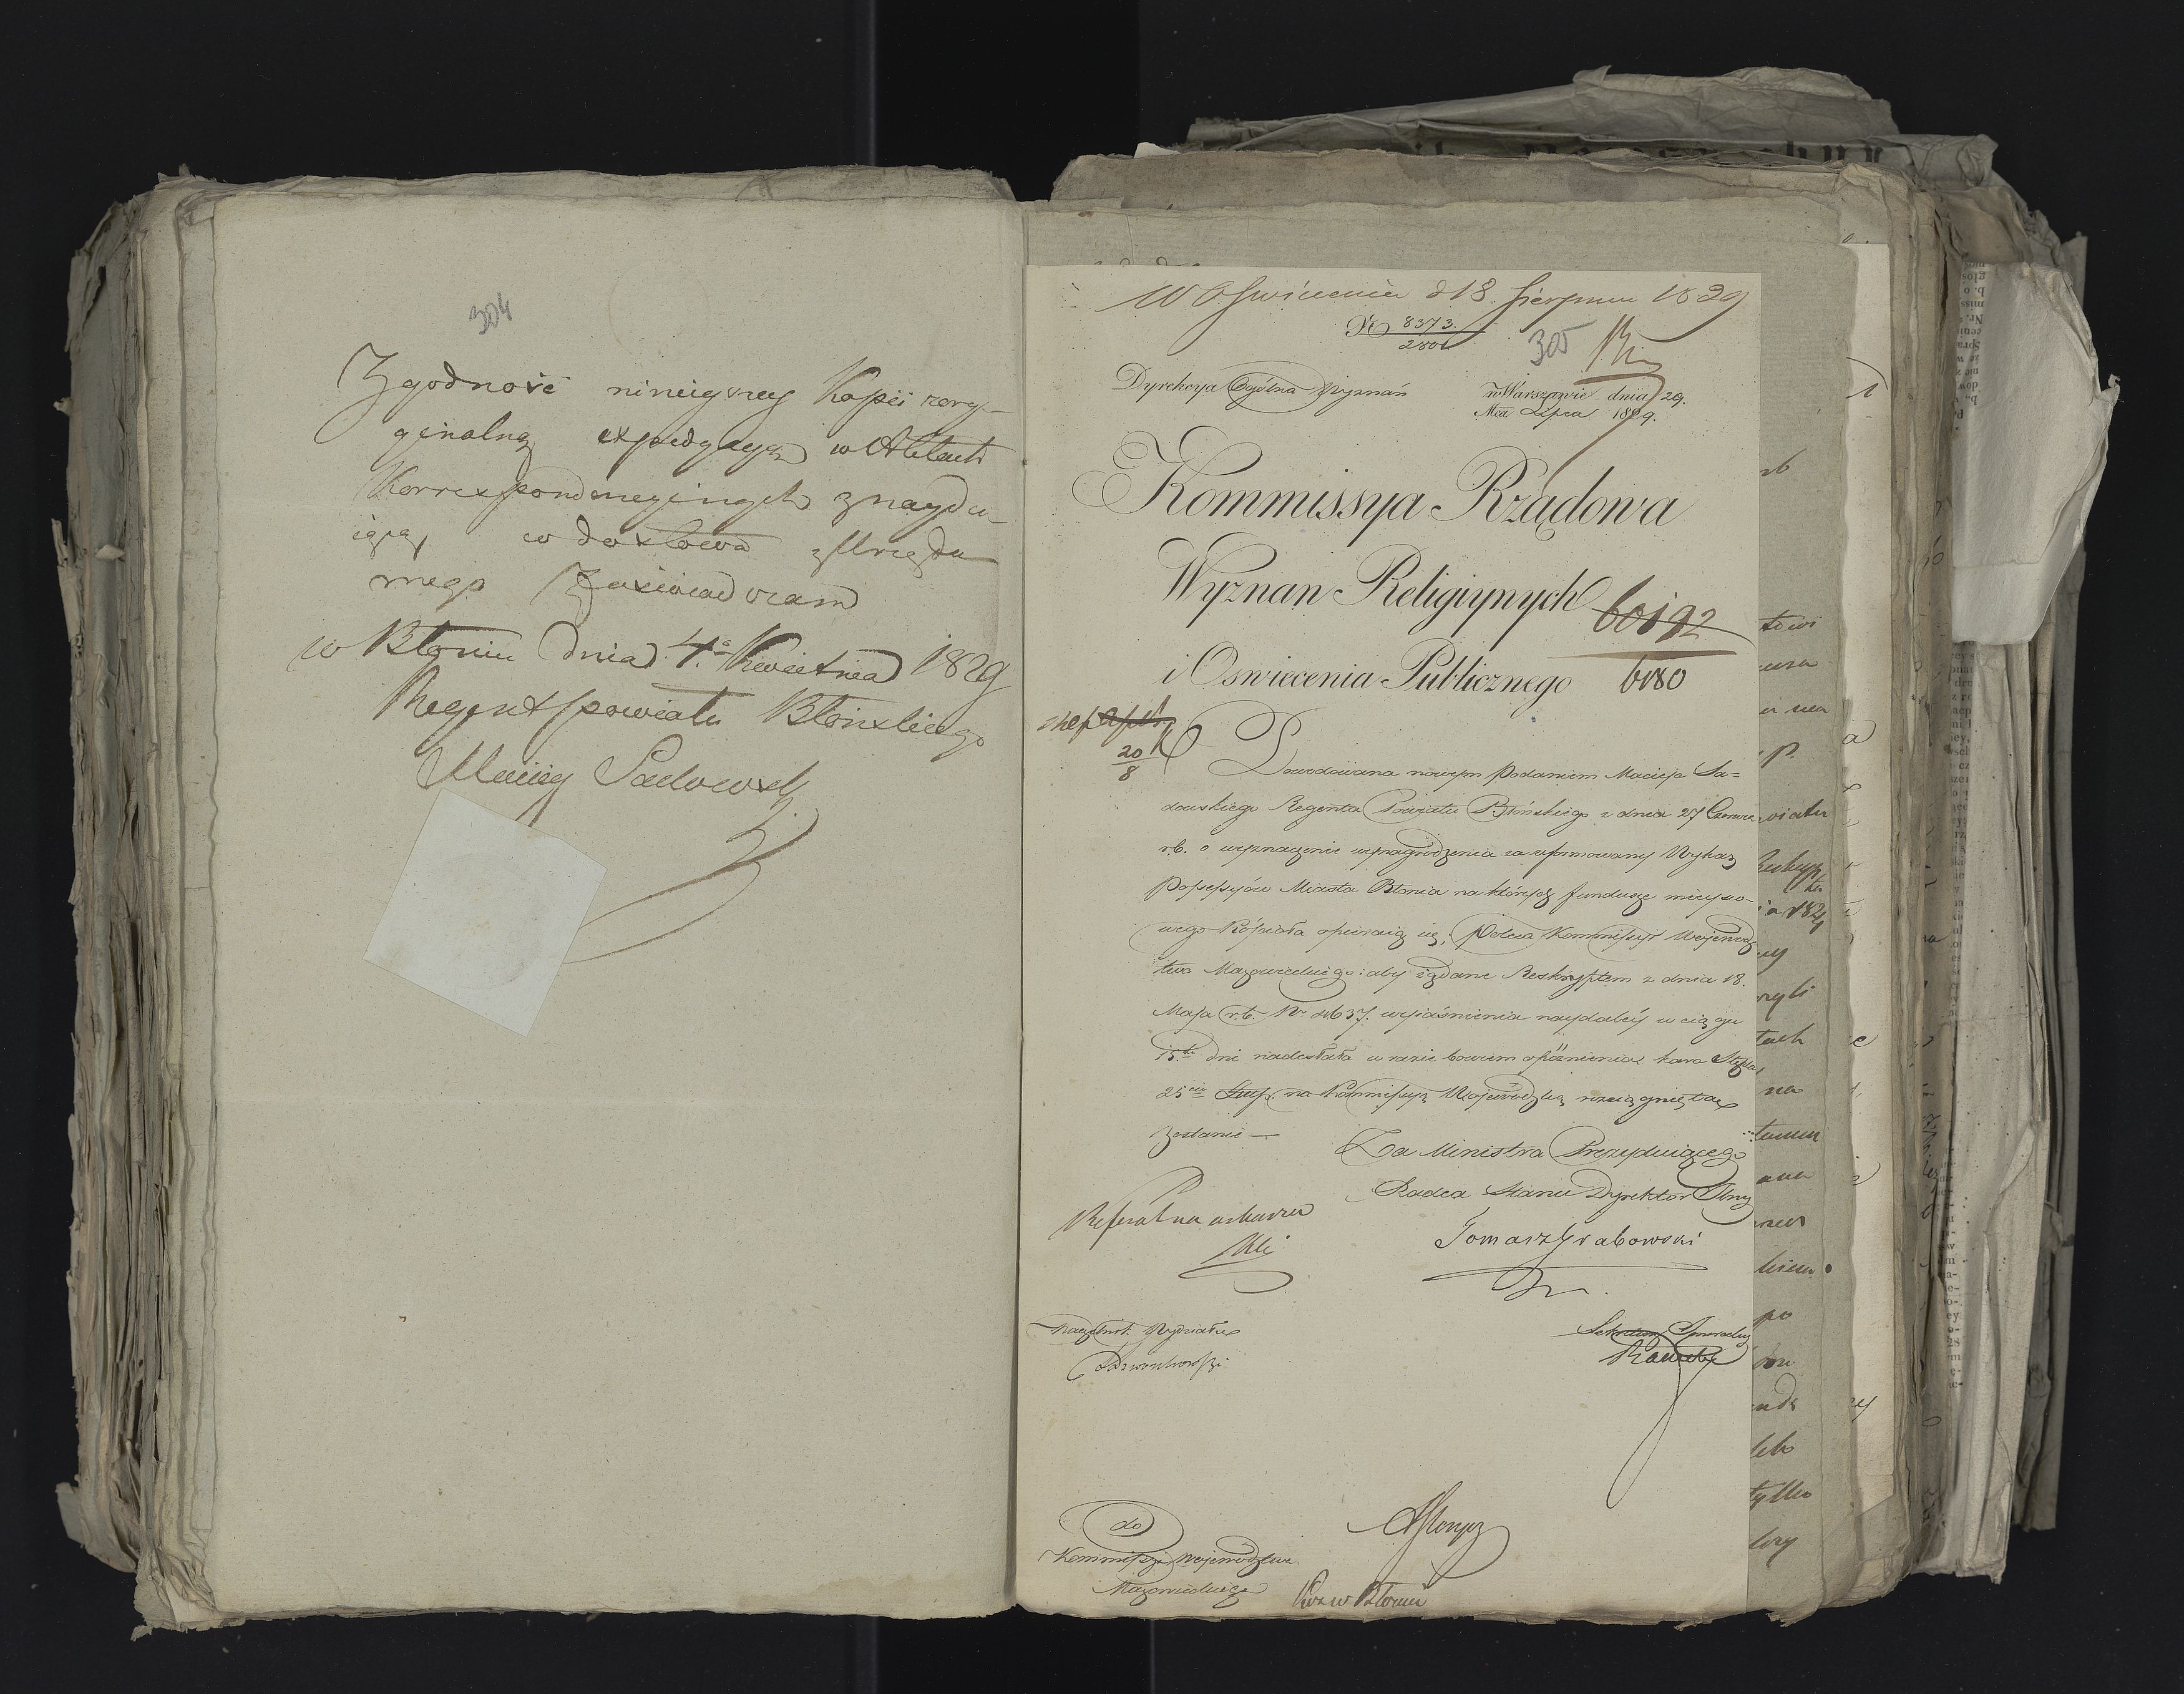 304
Zgodność ninieyszey Kopii z ory-
ginalną expedycyą w Aktach
Korrespondencyinych znaydu-
iącą, co do słowa z Urzędu
mego Zaświadczam
w Błoniu dnia 4.º Kwietnia 1829
Regent powiatu Błonskiego
Maciey Sadowski
W Oświecenia d 18. Sierpnia 1829
No 8373.
2801
305
Dyrekcya Ogólna Wyznań
w Warszawie dnia 29.
Mca Lipca 1829.
Kommissya Rządowa
Wyznan Religiynych
60192
6180
i Oswiecenia Publicznego
20
8
Powodowana nowym podaniem Macieja Sa=
dowskiego Regenta Powiatu Błońskiego z dnia 27 Czerwca
r.b. o wyznaczenie wynagrodzenia za uformowany Wykaz
Possessyów Miasta Błonia na których fundusze mieysco-
wego Kościoła opieraią się, poleca Kommissyi Wojewódz
twa Mazowieckiego: aby żądane Reskryptem z dnia 18.
Maja r.b. Nr 4637. wyjaśnienia naydaléy w ciągu
15.tu dni nadesłała w razie bowiem opóźnienia kara Stępla
25ciu złp. na Kommissyą Wojewódzką rozciągniętą
zostanie —
Za Ministra Prezyduiącego
Radca Stanu Dyrektor Glny
Referat na arkuszu
Tomasz Grabowski
Naczelnik Wydziału
Sekretarz Generalny
do
Kommissyi Województwa
Mazowieckiego
w Błoniu